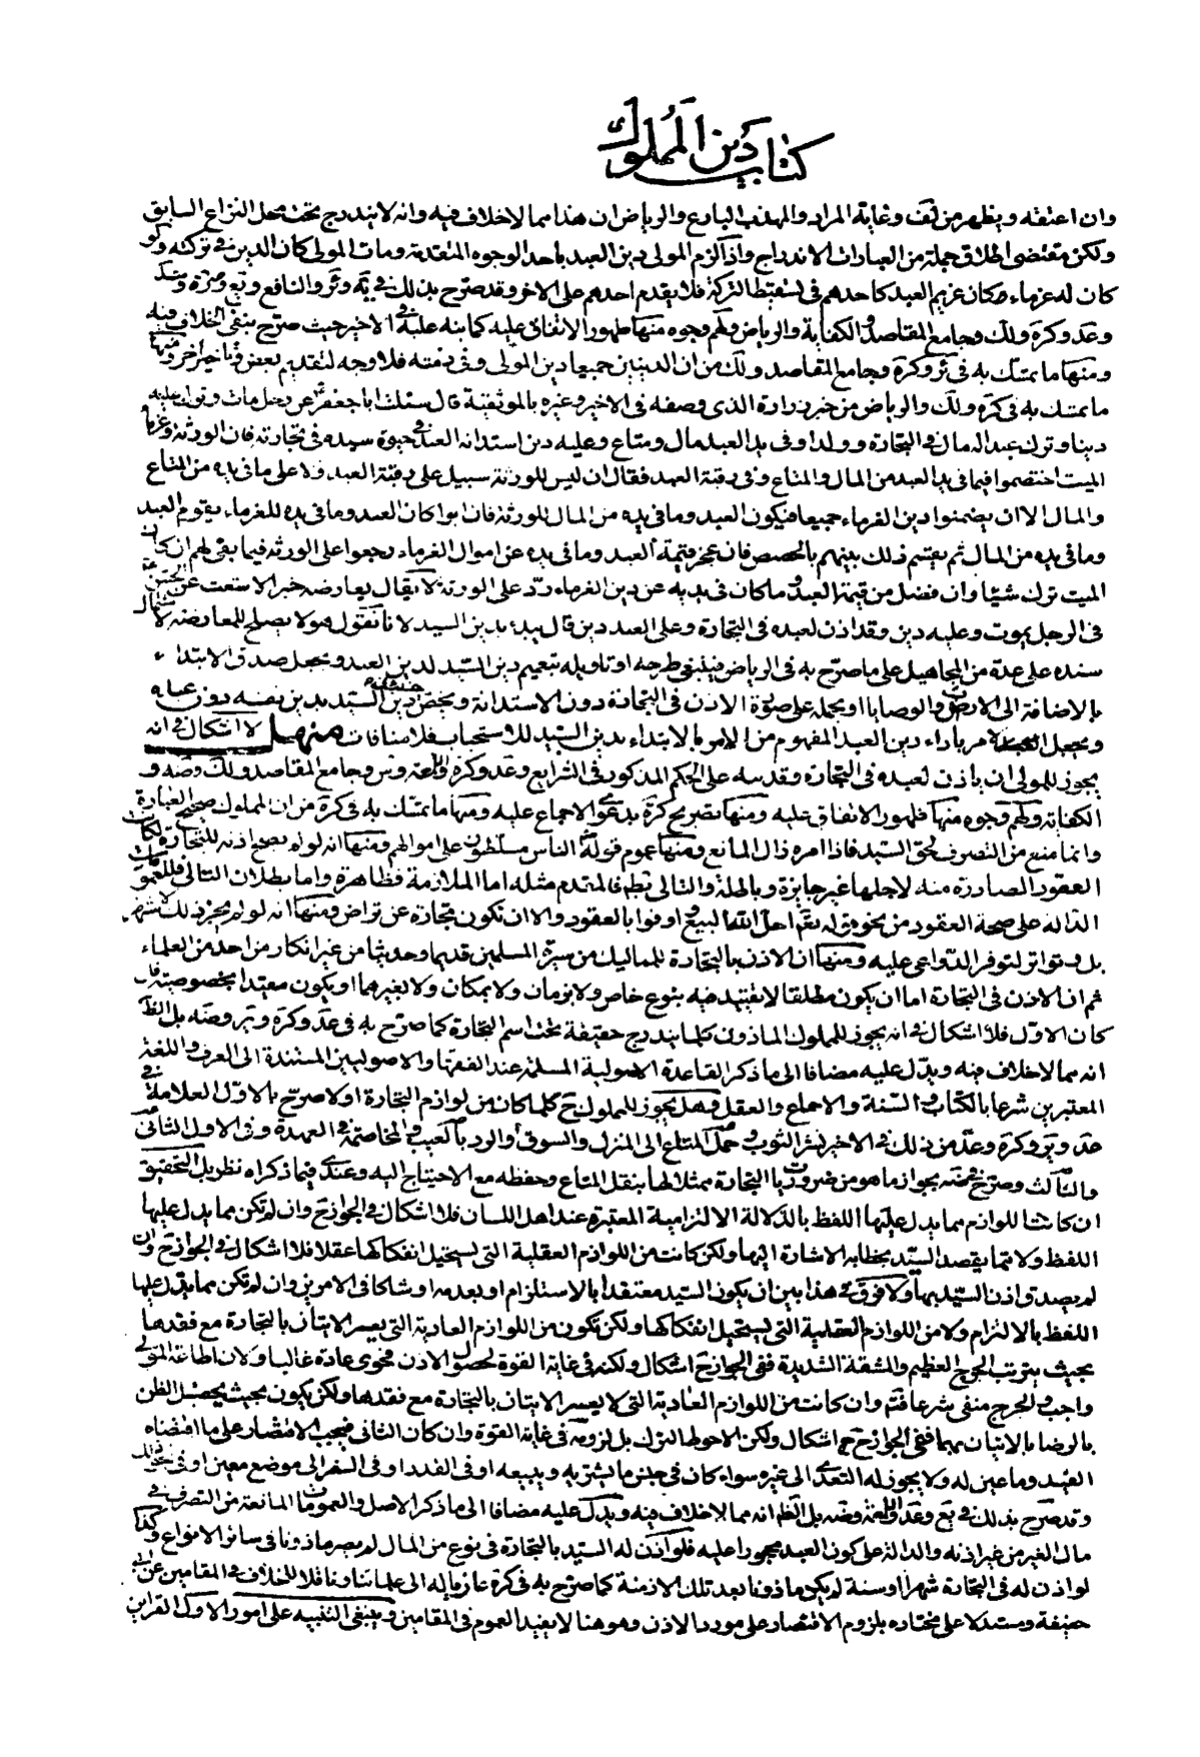 كتاب دين المملوك
وان اعتقه ويظهر من لف وغاية المراد والمهذب البارع والرياض ان هذا مما لاخلاف فيه وانه لا يندرج تحت محل النزاع السابق
ولكن مقتضى اطلاق جملة من العبارات الاندراج واذا الزم المولى دين العبد باحد الوجوه المتقدمة ومات المولى كان الدين في تركته ولو
كان له غرماء كان غريم العبد كاحدهم في تقسيط التركة فلا يقدم احدهم على الاخر وقد صرح بذلك في ية وئر والنافع ويع
وعد وكرة ولك وجامع المقاصد والكفاية والرياض ولهم وجوه منها ظهور الاتفاق عليه كما نبه عليه في الاخير حيث صرح بنفى الخلاف فيه
ومنها ما تمسك به في ئر وكرة وجامع المقاصد ولك من ان الدينين جميعا دين المولى وفى ذمته فلا وجه لتقديم بعض وتاخير اخر ومنها
ما تمسك به في كرة ولك والرياض من خبر زرارة الذى وصفه فى الاخير وغيره بالموثقية قال سئلت ابا جعفر عن رجل مات وترك عليه
دينا وترك عبدا له مال فى التجارة وولدا وفى يد العبد مال ومتاع وعليه دين استدانه العبد في حيوة سيده فى تجارته فان الورثة وغرماء
الميت اختصموا فيما فى يد العبد من المال والمتاع وفى رقبة العبد فقال ان ليس للورثة سبيل على رقبة العبد ولا على ما فى يده من المتاع
والمال الا ان يضمنوا دين الغرماء جميعا فيكون العبد وما فى يده من المال للورثة فان ابوا كان العبد وما فى يده للغرماء يقوم العبد
وما فى يده من المال ثم يقسم ذلك بينهم بالحصص فان عجز قيمة العبد وما فى يده عن اموال الغرماء رجعوا على الورثة فيما بقى لهم ان كان
الميت ترك شيئا وان فضل من قيمة العبد وما كان فى يديه عن دين الغرماء رد على الورثة لا يقال يعارضه خبر الاشعث عن الحسن
فى الرجل يموت وعليه دين وقد اذن لعبده فى التجارة وعلى العبد دين قال يبدء بدين السيد لانا نقول هو لا يصلح للمعارضة لاشتمال
سنده على عدة من المجاهيل على ما صرح به فى الرياض فينبغى طرحه او تاويله بتعميم دين السيد لدين العبد وتجعل صدق الابتداء
بالاضافة الى الارث والوصايا او يحمله على صورة الاذن فى التجارة دون الاستدانة ويختص دين السيد بدين نفسه دون عبده
ويجعل الامر باداء دين العبد المفهوم من الامر بالابتداء بدين السيد للاستحباب فلا منافات منهل لا اشكال في انه
يجوز للمولى ان ياذن لعبده فى التجارة وقد نبه على الحكم المذكور فى الشرايع وعد وكرة واللمعة وس وجامع المقاصد ولك وضه و
الكفاية ولهم وجوه منها ظهور الاتفاق عليه ومنها تصريح كرة بدعوى الاجماع عليه ومنها ما تمسك به فى كرة من ان المملوك صحيح العبارة
وانما منع من التصرف لحق السيد فاذا امره زال المانع ومنها عموم قوله الناس مسلطون على اموالهم ومنها انه لو لم يصح اذنه للتجارة لكان
العقود الصادرة منه لاجلها غير جايزة وباطلة والتالى بط فالمقدم مثله اما الملازمة فظاهرة واما بطلان التالى فللعمومات
الدالة على صحة العقود من نحو قوله تعم احل الله البيع و اوفوا بالعقود والا ان تكون تجارة عن تراض ومنها انه لو لم يجز ذلك لاشتهر
بل وتواتر لتوفر الدواعى عليه ومنها ان الاذن بالتجارة للمماليك من سيرة المسلمين قديما وحديثا من غير انكار من احد من العلماء
ثم ان الاذن فى التجارة اما ان يكون مطلقا لا تقييد فيه بنوع خاص ولا بزمان ولا بمكان ولا بغيرهما او يكون مقيدا بخصوصية فان
كان الاول فلا اشكال فى انه يجوز للمملوك الماذون كلما يندرج حقيقة تحت اسم التجارة كما صرح به فى عد وكرة وير وضه بل الظ
انه مما لا خلاف فيه ويدل عليه مضافا الى ما ذكر القاعدة الاصولية المسلمة عند الفقهاء والاصوليين المستندة الى العرف واللغة
المعتبرين شرعا بالكتاب والسنة والاجماع والعقل وهل يجوز للمملوك ح كلما كان من لوازم التجارة اولا صرح بالاول العلامة في
عد وير وكرة وعد من ذلك في الاخير نشر الثوب وحمل المتاع الى المنزل والسوق والرد بالعيب والمخاصمة فى العهدة وفى الاول الثانى
والثالث وصرح فى ضه بجواز ما هو من ضروريات التجارة ممثلا لها بنقل المتاع وحفظه مع الاحتياج اليه وعندى فيما ذكراه نظر بل التحقيق
ان كانت اللوازم مما يدل عليها اللفظ بالدلالة الالتزامية المعتبرة عند اهل اللسان فلا اشكال فى الجواز ح وان لم تكن مما يدل عليها
اللفظ ولا مما يقصد السيد بخطابه الاشارة اليها ولكن كانت من اللوازم العقلية التى يستحيل انفكاكها عقلا فلا اشكال فى الجواز ح وان
لم يصدق اذن السيد بها ولا فرق فى هذا بين ان يكون السيد معتقدا بالاستلزام او بعدمه او شاكا فى الامرين وان لم تكن مما يدل عليها
اللفظ بالالتزام ولا من اللوازم العقلية التى يستحيل انفكاكها ولكن تكون من اللوازم العادية التى يعسر الاتيان بالتجارة مع فقدها
بحيث يترتب الحرج العظيم والمشقة الشديدة ففى الجواز ح اشكال ولكنه فى غاية القوة لحصول الاذن فحوى عادة غالبا ولان اطاعة المولى
واجب والحرج منفى شرعا فتم وان كانت من اللوازم العادية التى لا يعسر الاتيان بالتجارة مع فقدها ولكن يكون بحيث يحصل الظن
بالرضا بالاتيان بها ففى الجواز ح اشكال ولكن الاحوط الترك بل لزومه فى غاية القوة وان كان الثانى فيجب الاقتصار على ما اقتضاه
القيد وما عين له ولا يجوز له التعدى الى غيره سواء كان فى جنس ما يشتريه ويبيعه او فى القدر او فى السفر الى موضع معين او فى نحو ذلك
وقد صرح بذلك فى يع وعد واللمعة وضه بل الظ انه مما لا خلاف فيه ويدل عليه مضافا الى ما ذكر الاصل والعمومات المانعة من التصرف فى
مال الغير من غير اذنه والدالة على كون العبد محجورا عليه فلو اذن له السيد بالتجارة فى نوع من المال لم يصر ماذونا فى سائر الانواع وكذا
لو اذن له فى التجارة شهرا او سنة لم يكن ماذونا بعد تلك الازمنة كما صرح به فى كرة عازيا له الى علمائنا ونافلا للخلاف فى المقامين عن ابى
حنيفة ومستدلا على مختاره بلزوم الاقتصار على مورد الاذن وهو هنا لا يفيد العموم فى المقامين وينبغى التنبيه على امور الاول القراين